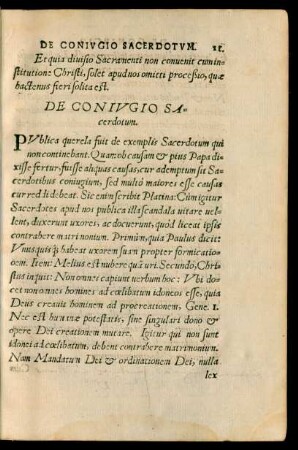 DE CONIVGIO SACERDOTVM. 21.
Et quia diuisio Sacramenti non conuenit cum in-
stitutione Christi, solet apud nos omitti processio, quæ
hactenus fieri solita est.
DE CONIVGIO SA-
cerdotum.
PVblica querela fuit de exemplis Sacerdotum qui
non continebant. Quamobcausam & pius Papa di-
xisse fertur, fuisse aliquas causas, cur ademptum sit Sa-
cerdotibus coniugium, sed multo maiores esse causas
cur reddi debeat. Sic enim scribit Platina: Cum igitur
Sacerdotes apud nos publica illa scandala vitare uel-
lent, duxerunt uxores, ac docuerunt, quod liceat ipsis
contrahere matrimonium. Primùm, quia Paulus dicit:
Vnusquisq; habeat uxorem suam propter fornicatio-
nem. Item: Melius est nubere quàm uri. Secundo, Chri-
stus inquit: Non omnes capiunt uerbum hoc: Vbi do-
cet non omnes homines ad cœlibatum idoneos esse, quia
Deus creauit hominem ad procreationem, Gene. 1.
Nec est humanæ potestatis, sine singulari dono &
opere Dei creationem mutare. Igitur qui non sunt
idonei ad cœlibatum, debent contrahere matrimonium.
Nam Mandatum Dei & ordinationem Dei, nulla
lex